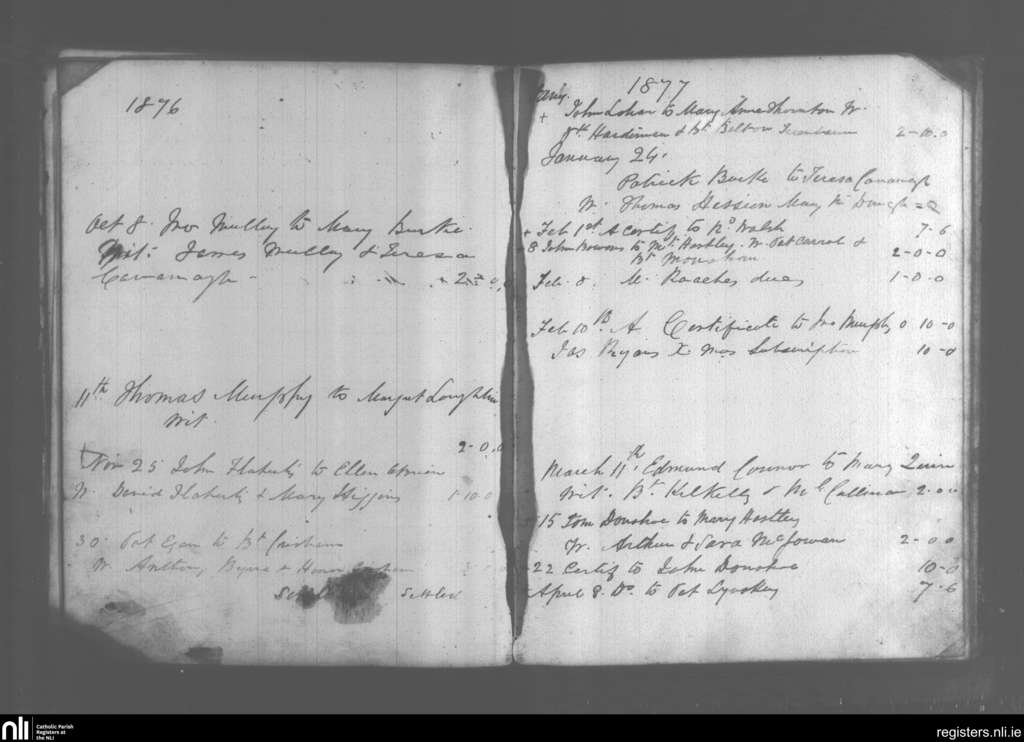 1876
Oct 8. Jno Mulley to Mary Burke.
Wit: James Mulley & Teresa
Cavanagh -
11th Thomas Murphy to Margt Loughlin
Wit.
2-0.0
Nov 25 John Flaherty to Ellen OBrien
W. David Flaherty & Mary Higgins 1 10 0
30. Pat Egan to Bt
W. Anthony Byrne & Honor
Settled
1877
+ John to Mary Anne Thornton W.
Hardiman & Bt 2-10.0
January 24.
Patrick Burke to Teresa Cavanagh
W. Thomas Hession Mary Mc
+ Feb 1st A Certif to Rd Walsh 7-6
8 John to Mt Hartley. W. Pat Carrol &
Bt 2-0-0
Feb. 8. M. Roaches dues 1-0-0
Feb 10 A Certificate to Jno Murphy 0 10-0
Jas Ryans X mas Subscription 10-0
March 11th, Edmund Connor to Mary Quin
Wit. Bt Kilkelly & 2.0.0
15 Tom Donohoe to Mary Hartley
Fr. Arthur & Sara McGowan 2-0 0
22 Certif to John Donohoe 10-0
April 8. Do. to Pat Lyoskey 7-6
nli
Catholic Parish
Registers at
the NLI
registers.nli.ie